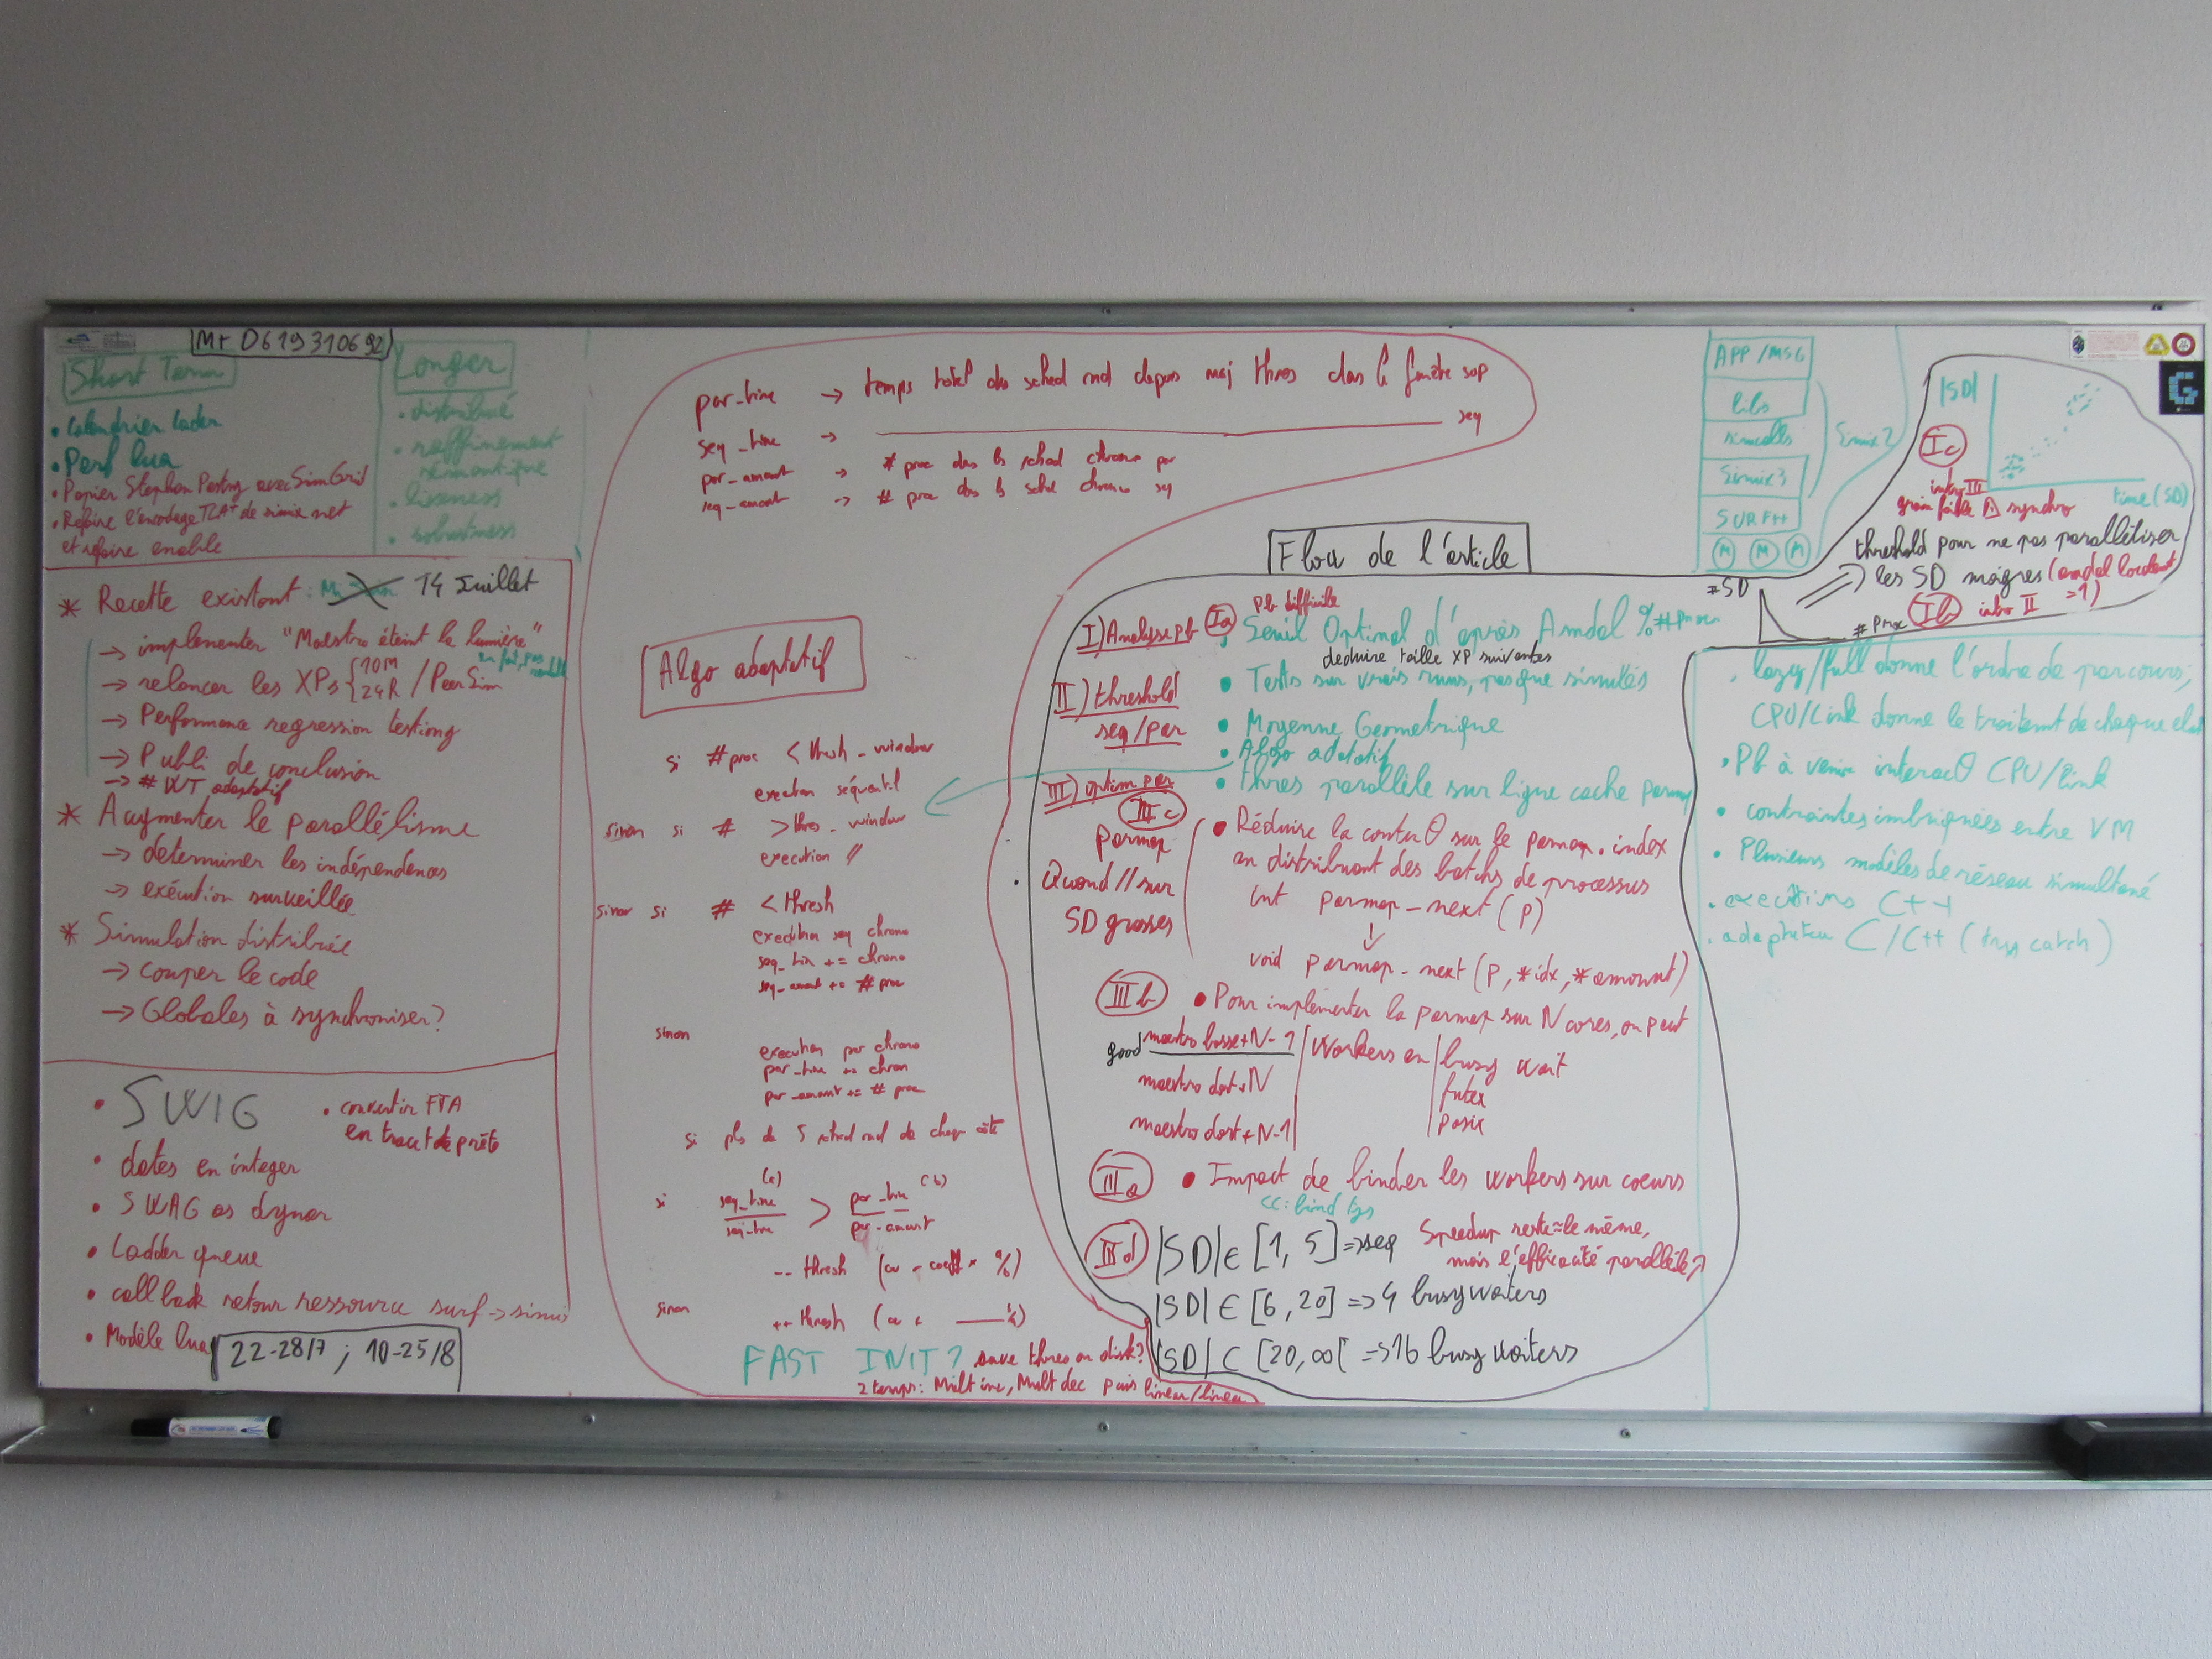 Mr D619310692
Short Term
• Calendrier Lader
• Perf lua
• Papier Stephan Postng avec SimGrid
• Refaire l'encodage TLA+ de simix net
et refaire enable
Longer
• distribué
• raffinement
sémantique
• liveness
• robustness
* Recette existant: 14 Juillet
→ implementer "Maestro éteint la lumière"
→ relancer les XPs { 10M / PeerSim
24R
→ Performance regression testing
→ Publi de conclusion
→ # WT adaptatif
* Augmenter le parallélisme
→ déterminer les indépendences
→ exécution surveillée
* Simulation distribuée
→ Couper le code
→ Globales à synchroniser?
• SWIG
• convertir FTA
en trace
• dates en integer
• SWAG as dynar
• Ladder queue
• callback retour ressource surf → simix
• Modèle lua
22-28/7 ; 10-25/8
par_time → temps total de sched rnd depuis maj thres dans la fenêtre
seq_time → seq
par_amount → # proc dans les sched chrono par
seq_amount → # proc dans les sched chrono seq
Algo adaptatif
si #proc < thresh_window
execution séquentiel
sinon si # > thres_window
execution //
sinon si # < thresh
execution seq chrono
seq_time += chrono
seq_amount += # proc
sinon
execution par chrono
par_time += chrono
par_amount += # proc
si plus de 5 sched rnd de chaque côté
si seq_time (a) > par_time (b)
seq_time par_amount
-- thresh (ou - coeff * %)
sinon
++ thresh
FAST INIT? save thres on disk?
2 temps: Mult inc, Mult dec puis linear/linear
Flow de l'article
I) Analyse pb
Ia
Pb difficile
• Seuil Optimal d'après Amdal % # proc
deduire taille XP suivantes
II) threshold
seq/par
• Tests sur vrais runs, pas que simulés
• Moyenne Geometrique
• Algo adatatif
III) optim par
• thres parallèle sur ligne cache parmap
IIIc
parmap
Quand // sur
SD grosses
• Réduire la contenθ sur le parmap.index
en distribuant des batchs de processus
int parmap_next (p)
↓
void parmap_next (p, *idx, *amount)
IIIb
• Pour implémenter la parmap sur N cores, on peut
good maestro bosse+N-1 | Workers en | busy wait
maestro dort+N futex
maestro dort+N-1 posix
IIIa
• Impact de binder les workers sur coeurs
IIId
|SD| ∈ [1, 5] => seq
Speedup reste≈le même,
mais l'efficacité parallèle ↗
|SD| ∈ [6, 20] => 4 busy waiters
|SD| ⊂ [20, ∞[ => 16 busy waiters
APP/MSG
libs
simcalls
Simix3
SURF++
M M M
Simix2
|SD|
Ic
intro III
grain faible synchro
time (SD)
threshold pour ne pas paralléliser
=> les SD maigres
#SD
# proc
Ib intro II
• lazy/full donne l'ordre de parcours,
CPU/Link donne le traitemt de chaque elmt
• Pb à venir interacθ CPU/link
• contraintes imbriquées entre VM
• Plusieurs modèles de réseau simultané
• C++
• adaptateur C/C++ (try catch)